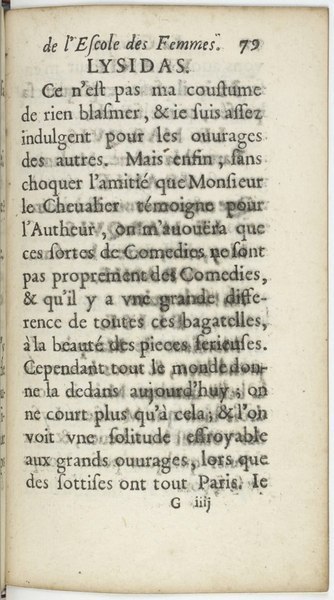 de l'Eſcole des Femmes. 79
LYSIDAS.
Ce n'eſt pas ma couſtume
de rien blaſmer, & ie ſuis aſſez
indulgent pour les ouurages
des autres. Mais enfin, ſans
choquer l'amitié que Monſieur
le Cheualier témoigne pour
l'Autheur, on m'auouëra que
ces ſortes de Comedies ne ſont
pas proprement des Comedies,
& qu'il y a vne grande diffe-
rence de toutes ces bagatelles,
à la beauté des pieces ſerieuſes.
Cependant tout le monde don-
ne la dedans aujourd'huy; on
ne court plus qu'à cela; & l'on
voit vne ſolitude effroyable
aux grands ouurages, lors que
des ſottiſes ont tout Paris. Ie
G iiij